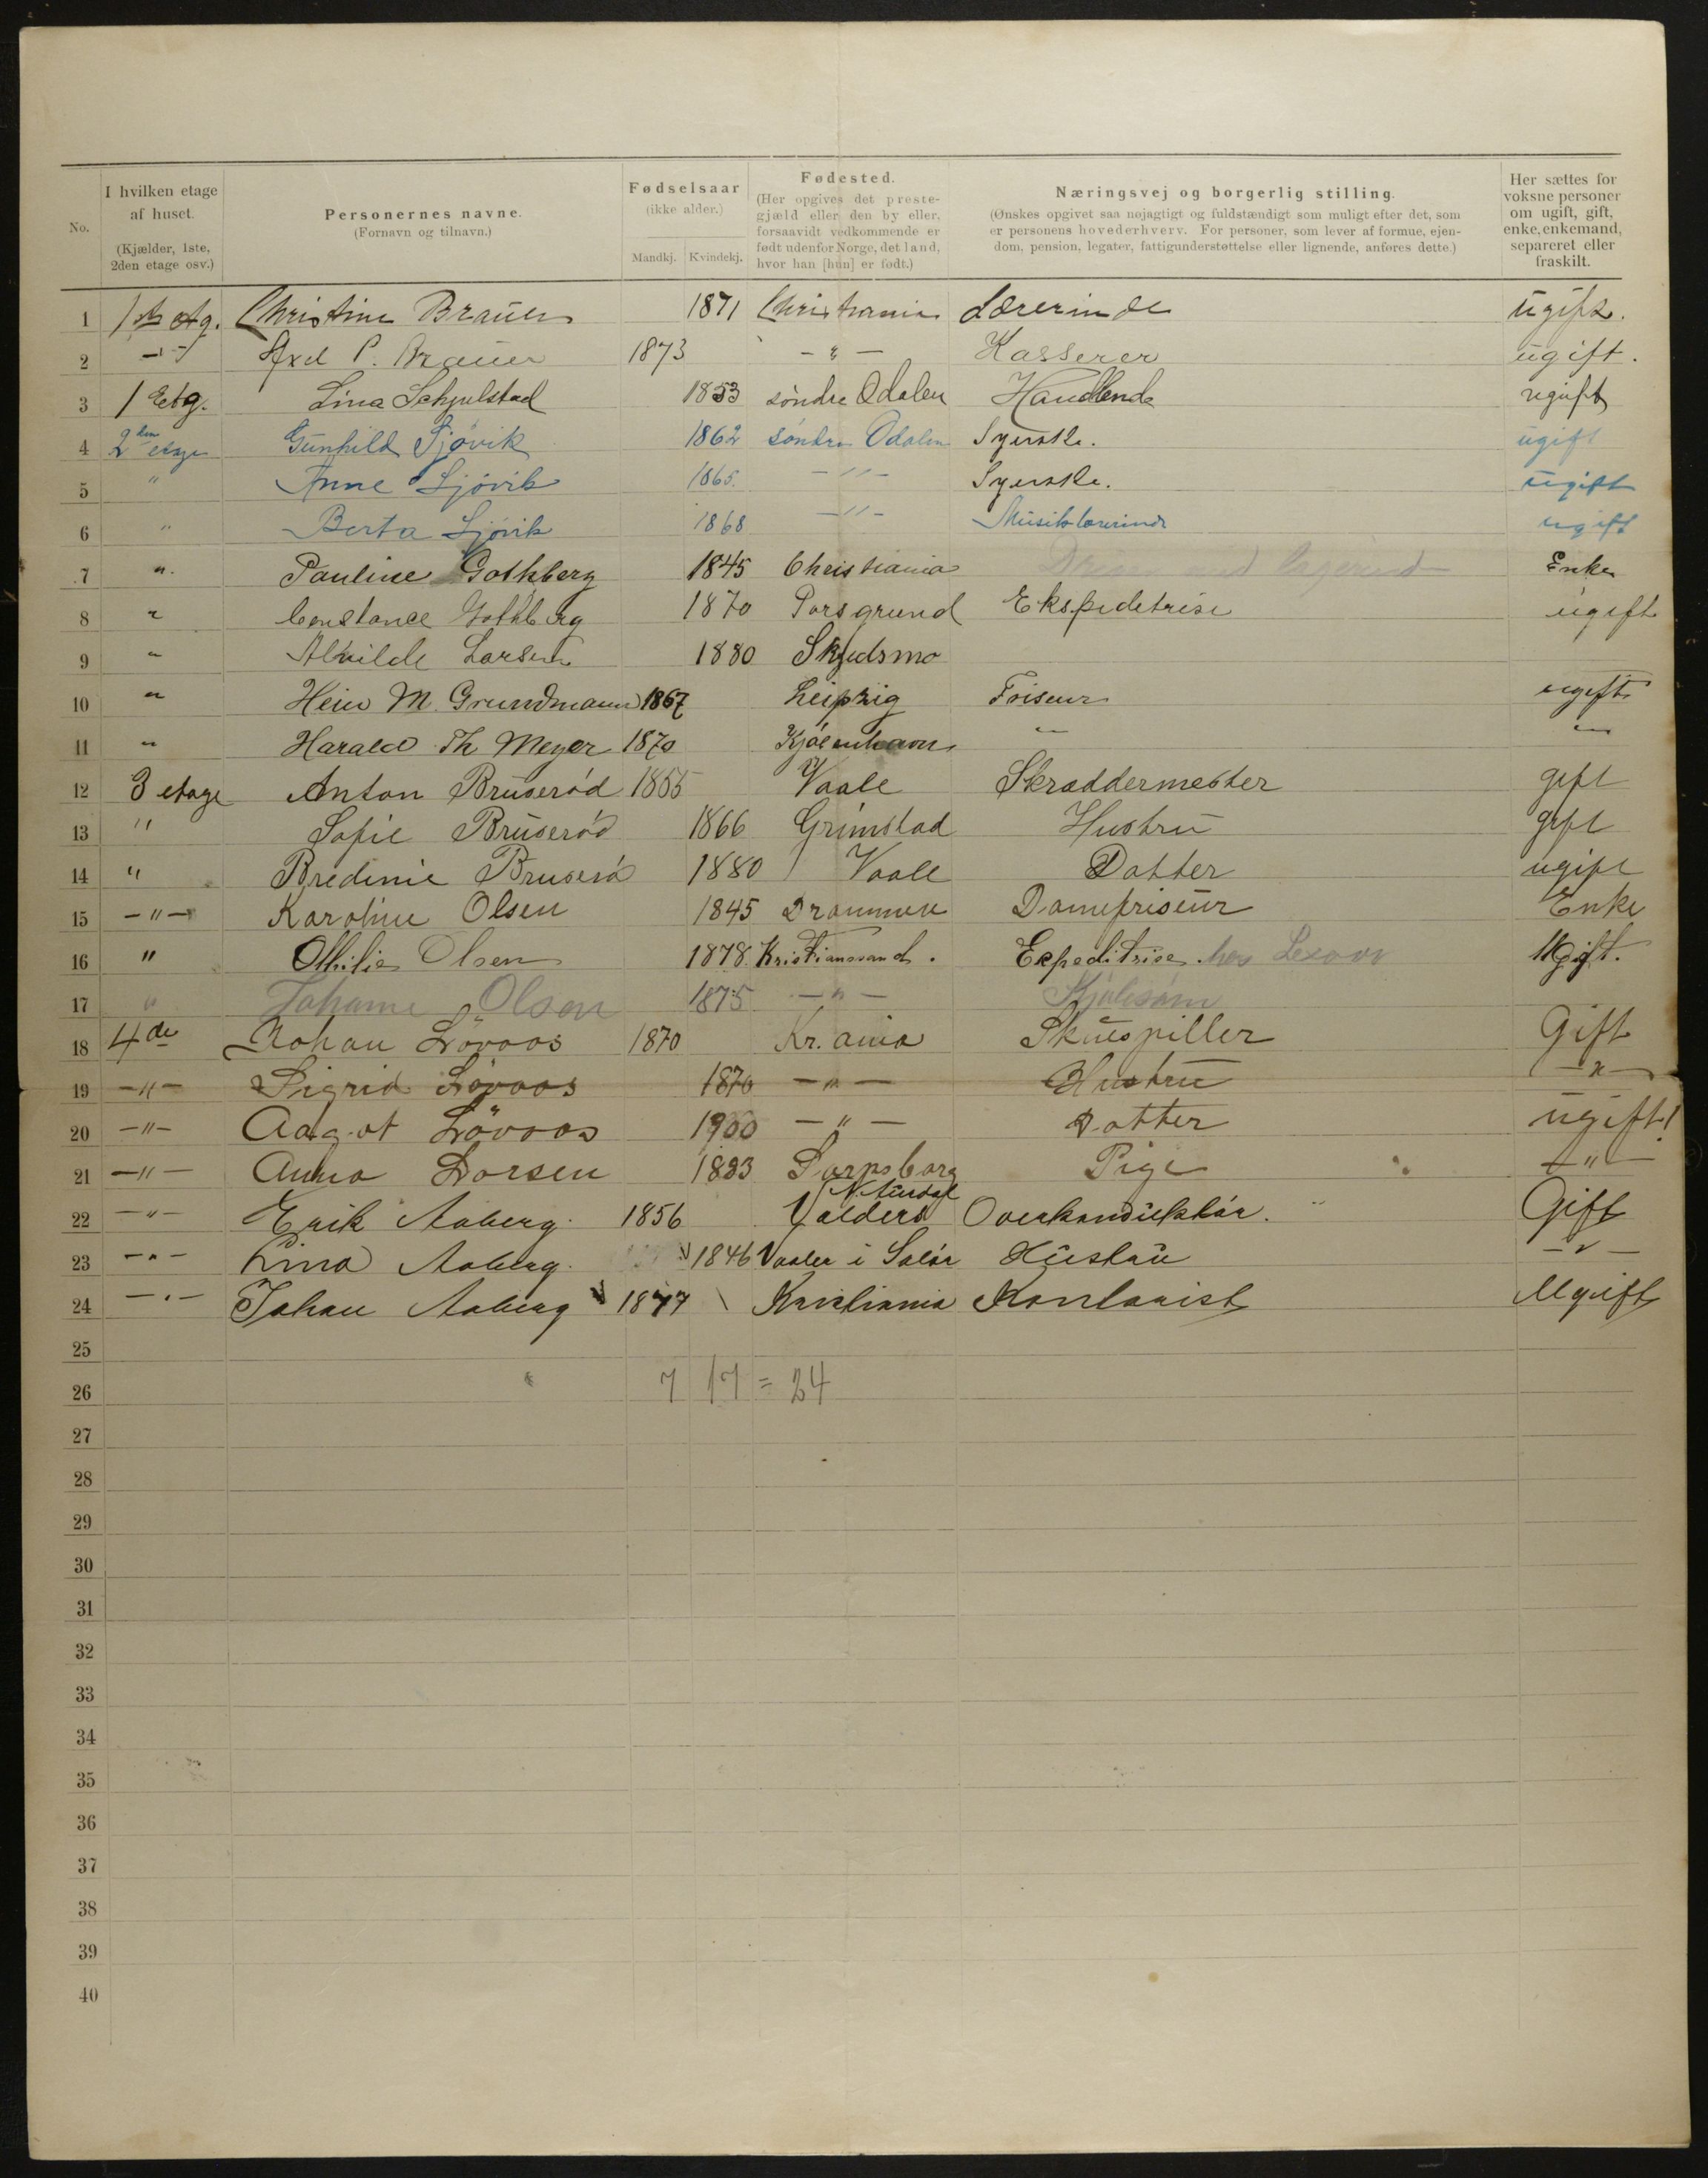 No. | I hvilken etage af huset. (Kjælder, 1ste, 2den etage osv.) | Personernes navne. (Fornavn og tilnavn.) | Fødselsaar (ikke alder.) Mandkj. Kvindekj. | Fødested. (Her opgives det prestegjæld eller den by eller, forsaavidt vedkommende er født udenfor Norge, det land, hvor han [hun] er født.) | Næringsvej og borgerlig stilling. (Ønskes opgivet saa nøjagtigt og fuldstændigt som muligt efter det, som er personens hovederhverv. For personer, som lever af formue, ejendom, pension, legater, fattigunderstøttelse eller lignende, anføres dette.) | Her sættes for voksne personer om ugift, gift, enke, enkemand, separeret eller fraskilt.
1 Christine Braüer 1871 Christiania Lærerinde ügift.
2 Axel P. Braüer 1873 - " - Kasserer ugift.
3 1 Etg. Lina Schjulstad 1853 søndre Odalen Handlende ugift
4 2den etage Günhild Sjövik 1862 søndre Odalen Syerske. ugift
5 " Anne Sjövik 1865. - " - Syerske. ügift
6 " Berta Sjövik 1868 - " - Müsiklærerinde ugift
7 " Pauline Gothberg 1845 Christiania Enke
8 " Constance Gothberg 1870 Porsgrund Ekspeditrise ügift
9 " Alvilde Larsen 1880 Skjedsmo
10 " Hein M. Grundmann 1867 Leipzig Friseur ugift
11 " Harald Th Meyer 1870 Kjöbenhavn " "
12 3 etage Anton Brüserød 1855 Vaale Skræddermester gift
13 " Sofie Brüserød 1866 Grimstad Hustrü gift
14 " Bredinie Bruserød 1880 Vaale Datter ugift
15 - " - Karoline Olsen 1845 Drammen Damefriseür Enke
16 " Othilie Olsen 1878. Kristianssand. Expeditrise. hos Ugift.
17 " Johanne Olsen 1875 - " - Kjolesöm
18 4de Johan Lövaas 1870 Kr.ania Sküespiller Gift
19 - " - Sigrid Lövaas 1870 - " - Hustrü - " -
20 - " - Aagot Lövaas 1900 - " - Datter ügift!
21 - " - Anna Larsen 1883 Sarpsborg Pige - " -
22 - " - Erik Aaberg. 1856 N. Aürdal Valders Overkondüktör. Gift
23 - " - Lina Aaberg. 1846 Vaaler i Solör Hüstrü - " -
24 - " - Johan Aaberg 1877 Kristiania Kontorist Ugift
25
26 7 17 = 24
27
28
29
30
31
32
33
34
35
36
37
38
39
40